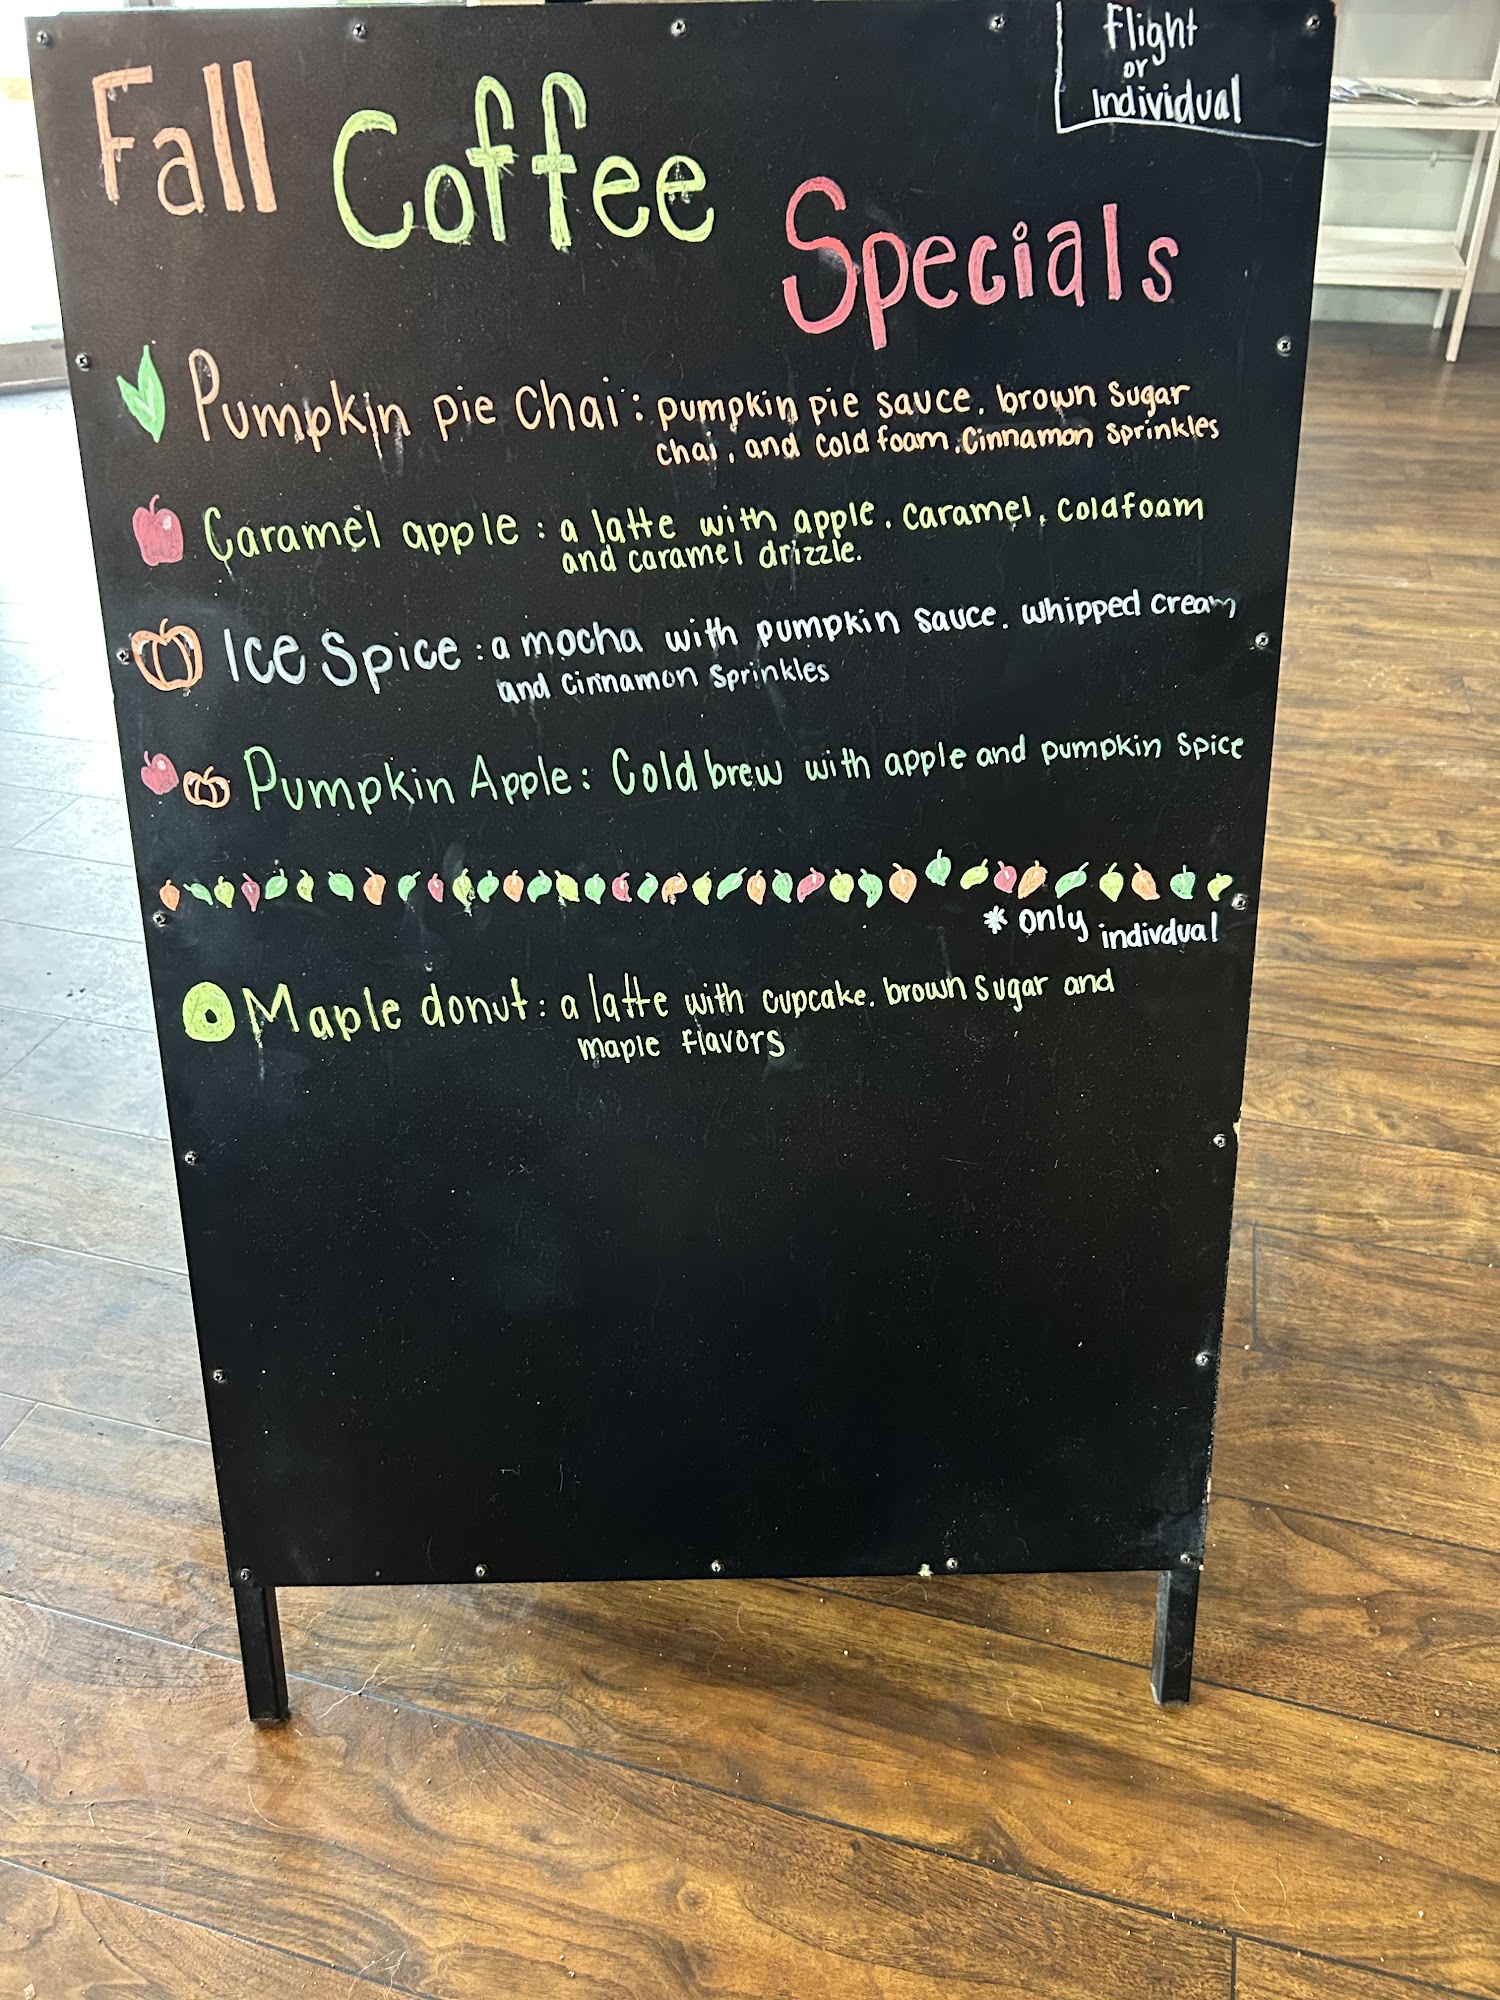 Flight
or
individual
Fall Coffee Specials
Pumpkin pie Chai: pumpkin pie sauce, brown sugar
chai, and cold foam, Cinnamon sprinkles
Caramel apple: a latte with apple, caramel, coldfoam
and caramel drizzle.
ICE SPICE: a mocha with pumpkin sauce, whipped cream
and cinnamon sprinkles
Pumpkin Apple: Cold brew with apple and pumpkin spice
* only indivdual
Maple donut: a latte with cupcake, brown sugar and
maple flavors